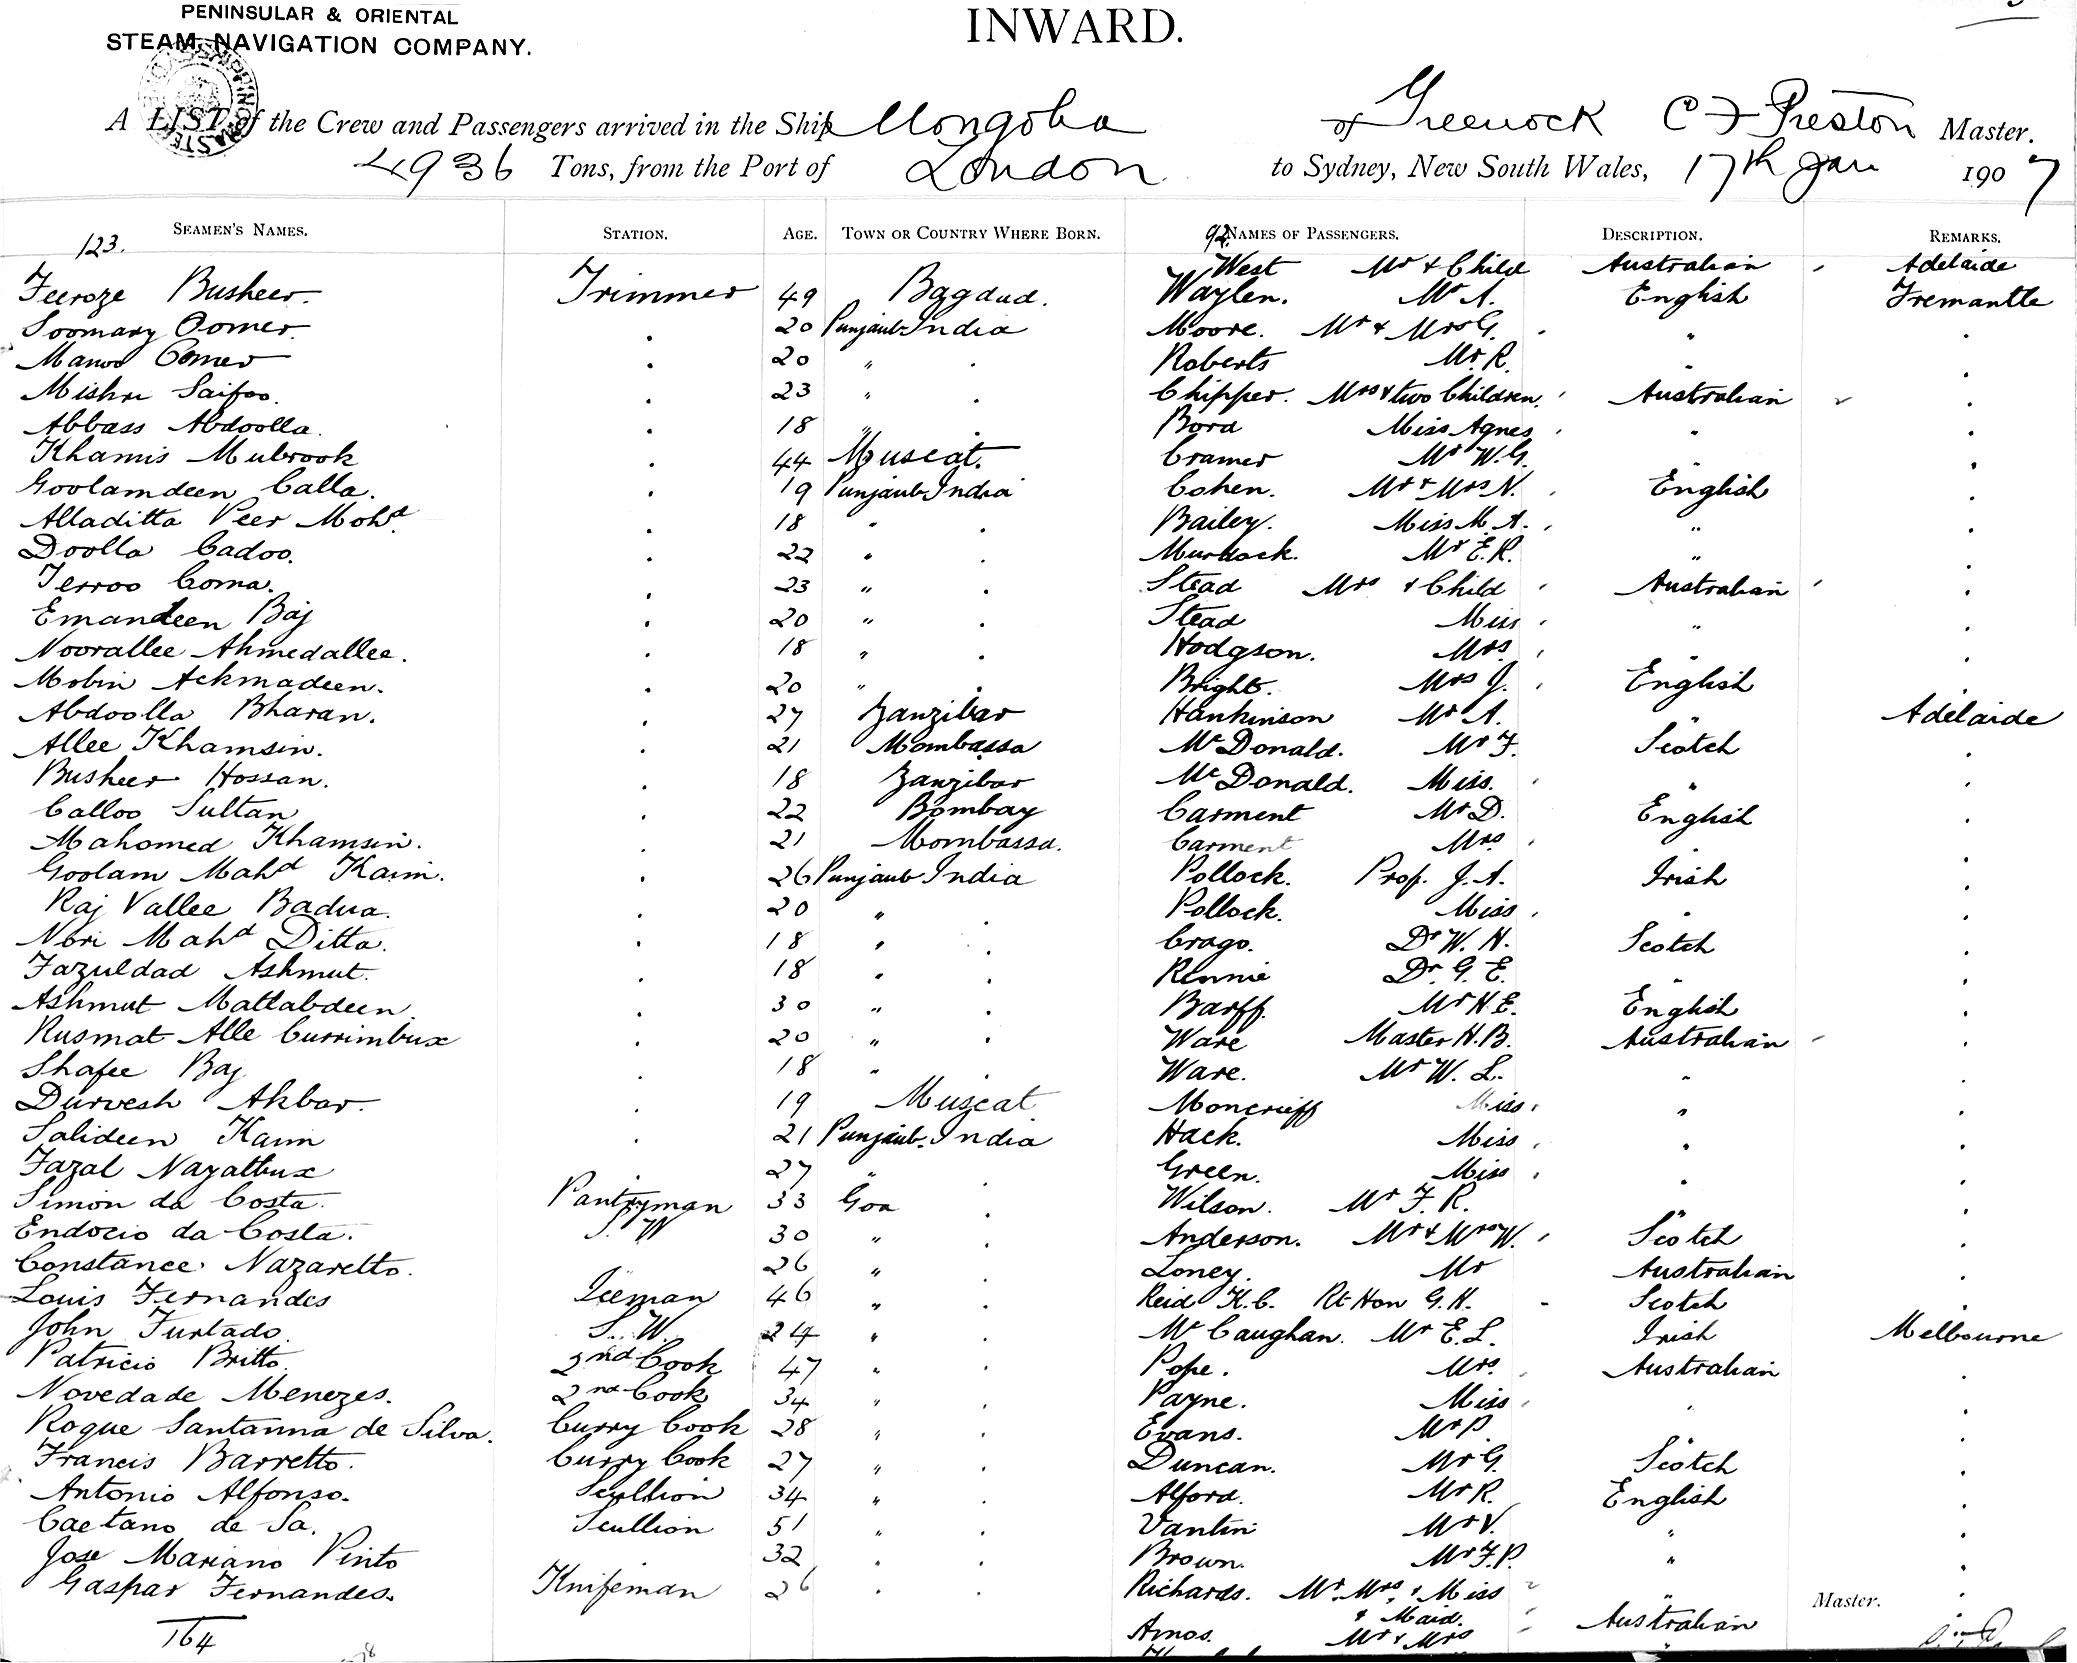 PENINSULAR & ORIENTAL
STEAM NAVIGATION COMPANY.
INWARD.
A LIST of the Crew and Passengers arrived in the Ship Mongolia of Greenock C F Preston Master.
4936 Tons, from the Port of London to Sydney, New South Wales, 17th Jan 1907
SEAMEN'S NAMES. STATION. AGE. TOWN OR COUNTRY WHERE BORN. NAMES OF PASSENGERS. DESCRIPTION. REMARKS.
123. 92
West Mr & Child Australian Adelaide
Feeroze Busheer. Trimmer 49 Bagdad. Waylen. Mr A. English Fremantle
Soomary Oomer. . 20 Punjaub India Moore. Mr & Mrs G. " .
Manoo Comer . 20 " . Roberts Mr. R. " .
Mishri Saifoo. . 23 " . Chipper. Mrs & two Children. Australian .
Abbass Abdoolla. . 18 " . Bord Miss Agnes " .
Khamis Mubrook . 44 Muscat. Cramer Mr W.G. " .
Goolamdeen Calla. . 19 Punjaub India Cohen. Mr & Mrs N. English .
Alladitta Peer Mohd. . 18 " . Bailey. Miss M A. " .
Doolla Cadoo. . 22 " . Murdock. Mr E.R. " .
Ferroo Coma. . 23 " . Stead Mrs & Child Australian .
Emandeen Baj . 20 " . Stead Miss " .
Noorallee Ahmedallee. . 18 " . Hodgson. Mrs. " .
Mobin Ackmadeen. . 20 " . Bright. Mrs J. English .
Abdoolla Bharan. . 27 Zanzibar Hankinson Mr A. Adelaide
Allee Khamsin. . 21 Mombassa McDonald. Mr F. Scotch .
Busheer Hossan. . 18 Zanzibar McDonald. Miss. " .
Calloo Sultan . 22 Bombay Carment Mr D. English .
Mahomed Khamsin. . 21 Mombassa. Carment Mrs .
Goolam Mahd Karim. . 26 Punjaub India Pollock. Prof. J.A. Irish .
Raj Vallee Badua. . 20 " . Pollock. Miss " .
Nbri Mahd Ditta. . 18 " . Crago. Dr W. H. Scotch .
Fazuldad Ashmut. . 18 " . Rennie Dr. G. E. " .
Ashmut Mattabdeen. . 30 " . Barff. Mr H.E. English .
Rusmat Alle Currimbux . 20 " . Ware Master H.B. Australian .
Shafee Baj . 18 " . Ware. Mr W. L. " .
Durvesh Akbar. . 19 Muscat Moncrieff Miss. " .
Salideen Karim . 21 Punjaub. India Hack. Miss " .
Fazal Nayatbux . 27 " . Green. Miss " .
Simon da Costa. Pantryman 33 Goa . Wilson. Mr F. R. " .
Endocio da Costa. S. W 30 " . Anderson. Mr & Mrs W. Scotch .
Constance Nazaretto. 26 " . Loney. Mr Australian .
Louis Fernandes Iceman 46 " . Reid K.C. Rt Hon G.H. Scotch .
John Furtado. S. W. 24 " . McCaughan. Mr E.L. Irish Melbourne
Patricio Britto. 2nd Cook 47 " . Pope. Mrs. Australian .
Novedade Menezes. 2nd Cook 34 " . Payne. Miss " .
Roque Santanna de Silva. Curry Cook 28 " . Evans. Mr P. " .
Francis Barretto. Curry Cook 27 " . Duncan. Mr G. Scotch .
Antonio Alfonso. Scullion 34 " . Alford. Mr R. English .
Caetano de Sa. Scullion 51 " . Vantin Mr V. " .
Jose Mariano Pinto 32 " . Brown. Mr F.P. " .
Gaspar Fernandes. Knifeman 26 " . Richards. Mr. Mrs. & Miss " .
& Maid. Master.
164 Amos. Mr & Mrs Australian